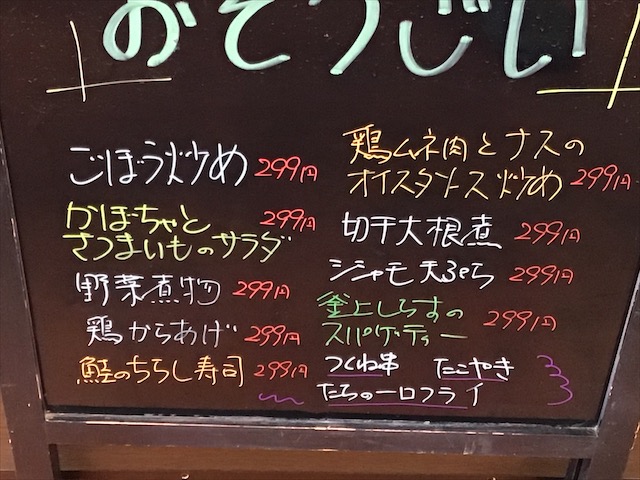 おそうざい
ごぼう炒め 299円
かぼちゃと
さつまいものサラダ 299円
野菜煮物 299円
鶏からあげ 299円
鮭のちらし寿司 299円
鶏ムネ肉とナスの
オイスターソース炒め 299円
切干大根煮 299円
シシャモ天ぷら 299円
釜上しらすの
スパゲティー 299円
つくね串 たこやき
たらの一口フライ